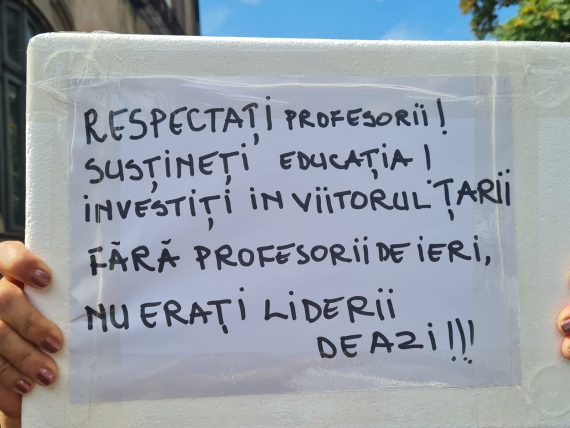 RESPECTAȚI PROFESORII!
SUSȚINEȚI EDUCAȚIA!
INVESTIȚI IN VIITORUL ȚARII
FĂRĂ PROFESORII DE IERI,
NU ERAȚI LIDERII
DE AZI!!!